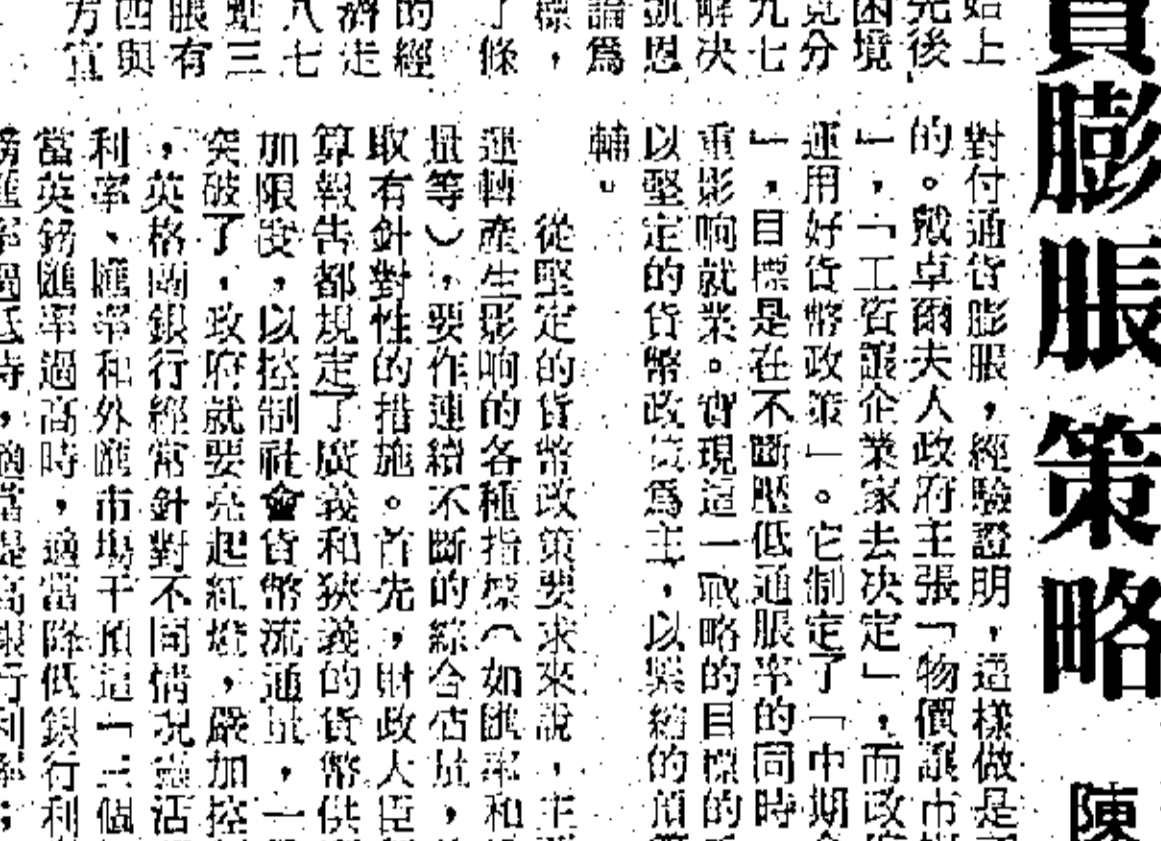 膨脹策略
陳
始上
先後
困境
竟分
九七
解決
凱恩
論爲
標，
了條
的經
濟走
八七
點三
脹有
西與
方宜
對付通貨膨脹，經驗證明，這樣做是
的。戴卓爾夫人政府主張「物價讓市場
」，「工資讓企業家去決定」，而政府
運用好貨幣政策」。它制定了「中期
」，目標是在不斷壓低通脹率的同時
重影响就業。實現這一戰略的目標的
以堅定的貨幣政策爲主，以緊縮的預算
輔。
從堅定的貨幣政策要求來說，主要
運轉產生影响的各種指標（如匯率和
量等），要作連續不斷的綜合估量，
取有針對性的措施。首先，財政大臣
算報告都規定了廣義和狹義的貨幣供
加限度，以控制社會貨幣流通量，一
突破了，政府就要亮起紅燈，嚴加控
，英格蘭銀行經常針對不同情况靈活
利率、匯率和外匯市場干預這一三個
當英鎊匯率過高時，適當降低銀行利
鎊匯率過低時，適當提高銀行利率；